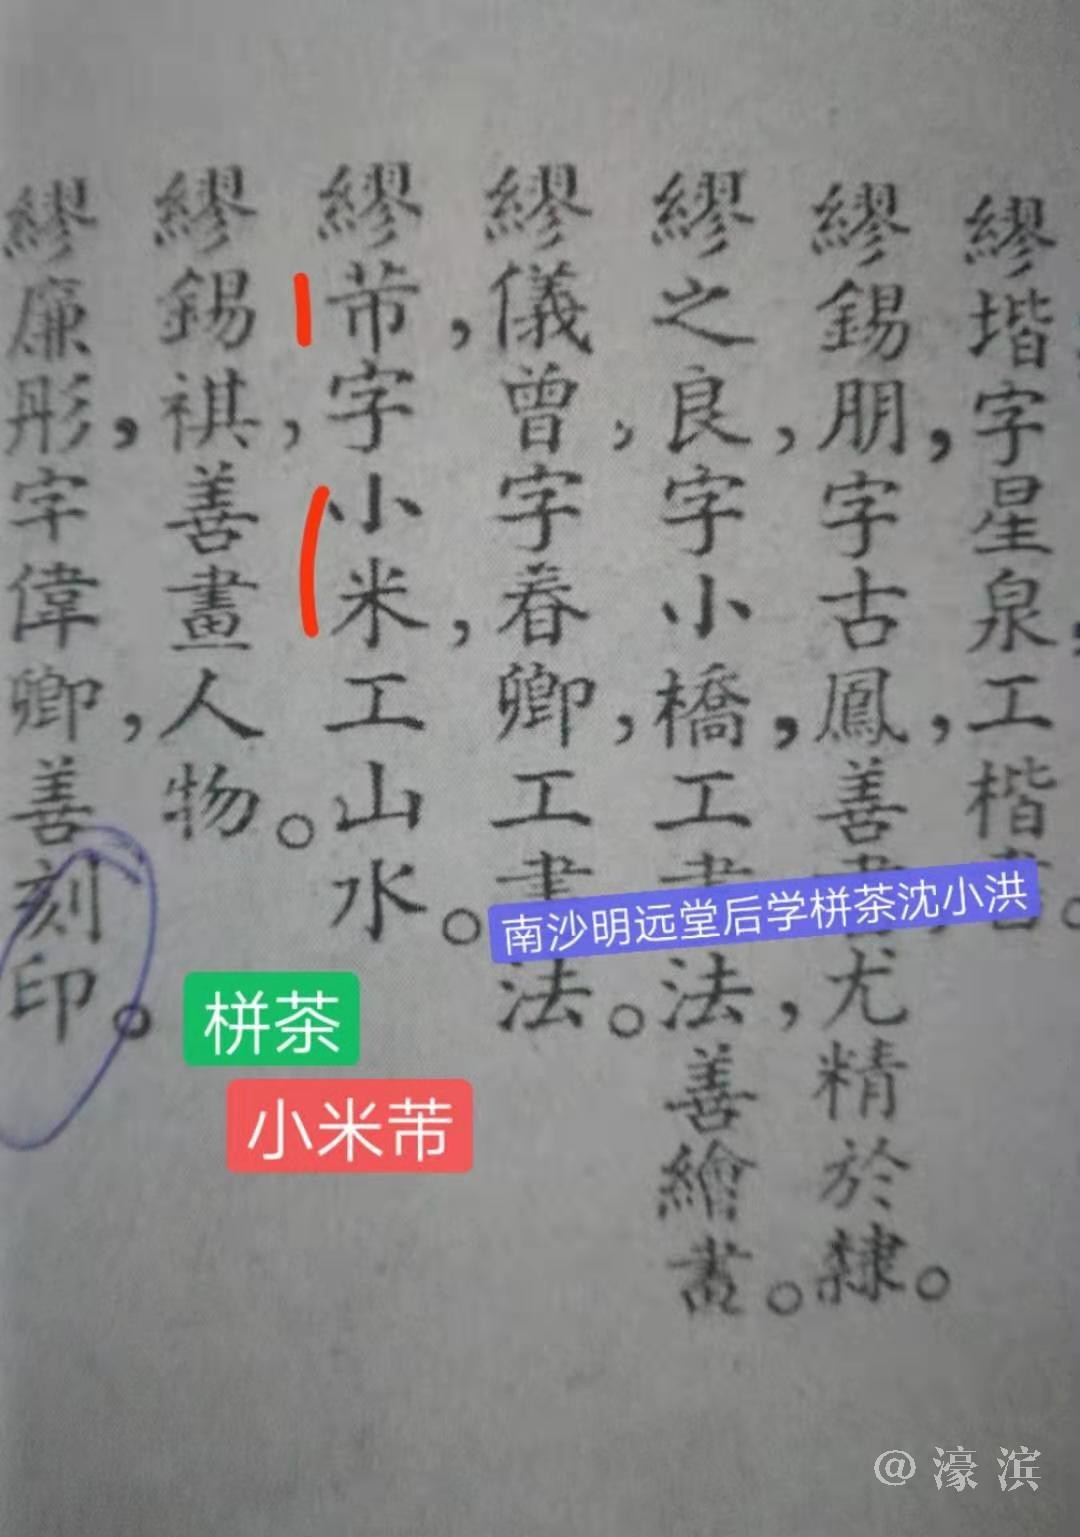 繆堦字星泉，工楷
繆錫朋字古鳳，善尤精於隸。
繆之良字小橋，工法，善繪畫。
繆儀曾字春卿，工法。
繆芾，字小米，工山水。
繆錫祺，善畫人物。
繆廉彤，字偉卿，善刻印。
南沙明远堂后学栟茶沈小洪
栟茶
小米芾
@濠滨